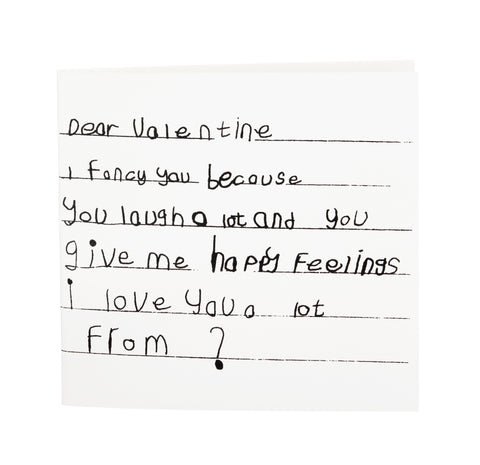 Dear Valentine
i fancy you because
you laugh a lot and you
give me happy feelings
i love you a lot
from ?